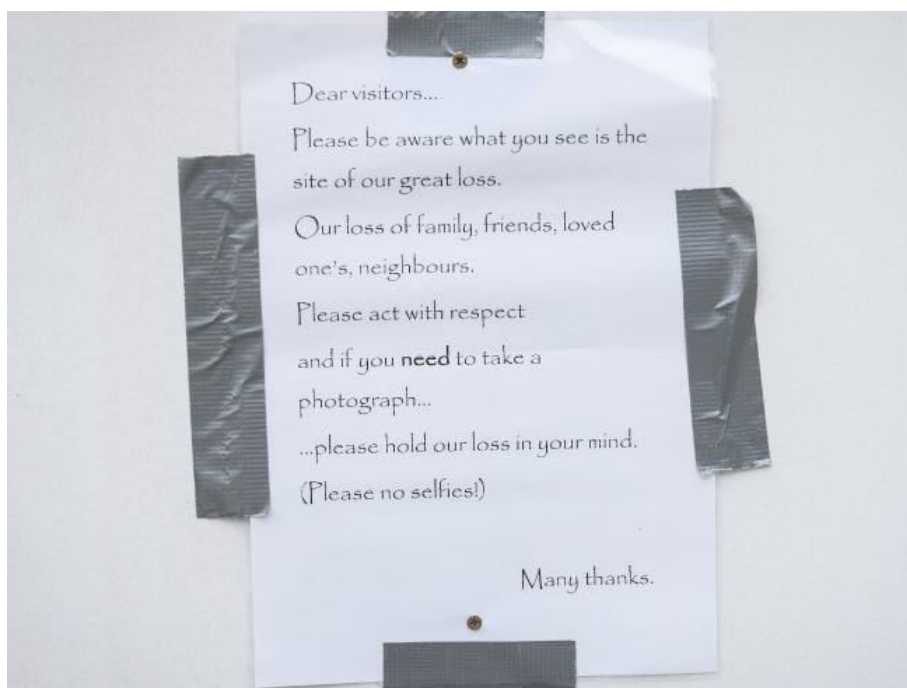 Dear visitors...
Please be aware what you see is the
site of our great loss.
Our loss of family, friends, loved
one's, neighbours.
Please act with respect
and if you need to take a
photograph...
...please hold our loss in your mind.
(Please no selfies!)
Many thanks.